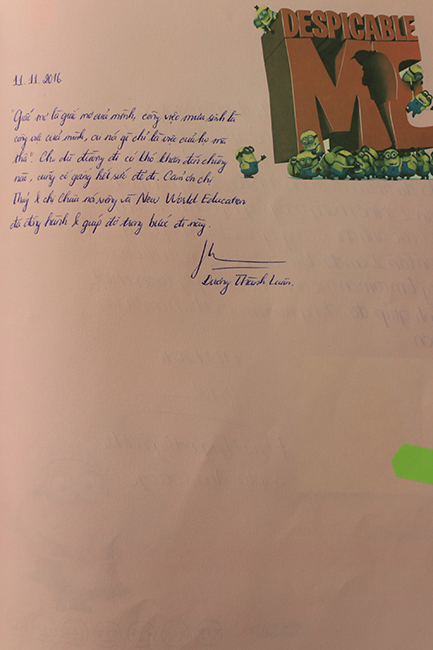 DESPICABLE
ME
11.11.2016
"Giấc mơ là giấc mơ của mình, công việc mưu sinh là
của mình, của họ chỉ là việc của họ mà
thôi". Cho dù đường đi có khó khăn đến chừng
nào, cũng cố gắng hết sức để đi. Cảm ơn chị
Thuý & chị Châu nói riêng và New World Education
đã đồng hành & giúp đỡ trong bước đi này.
Dương Thành Luân.